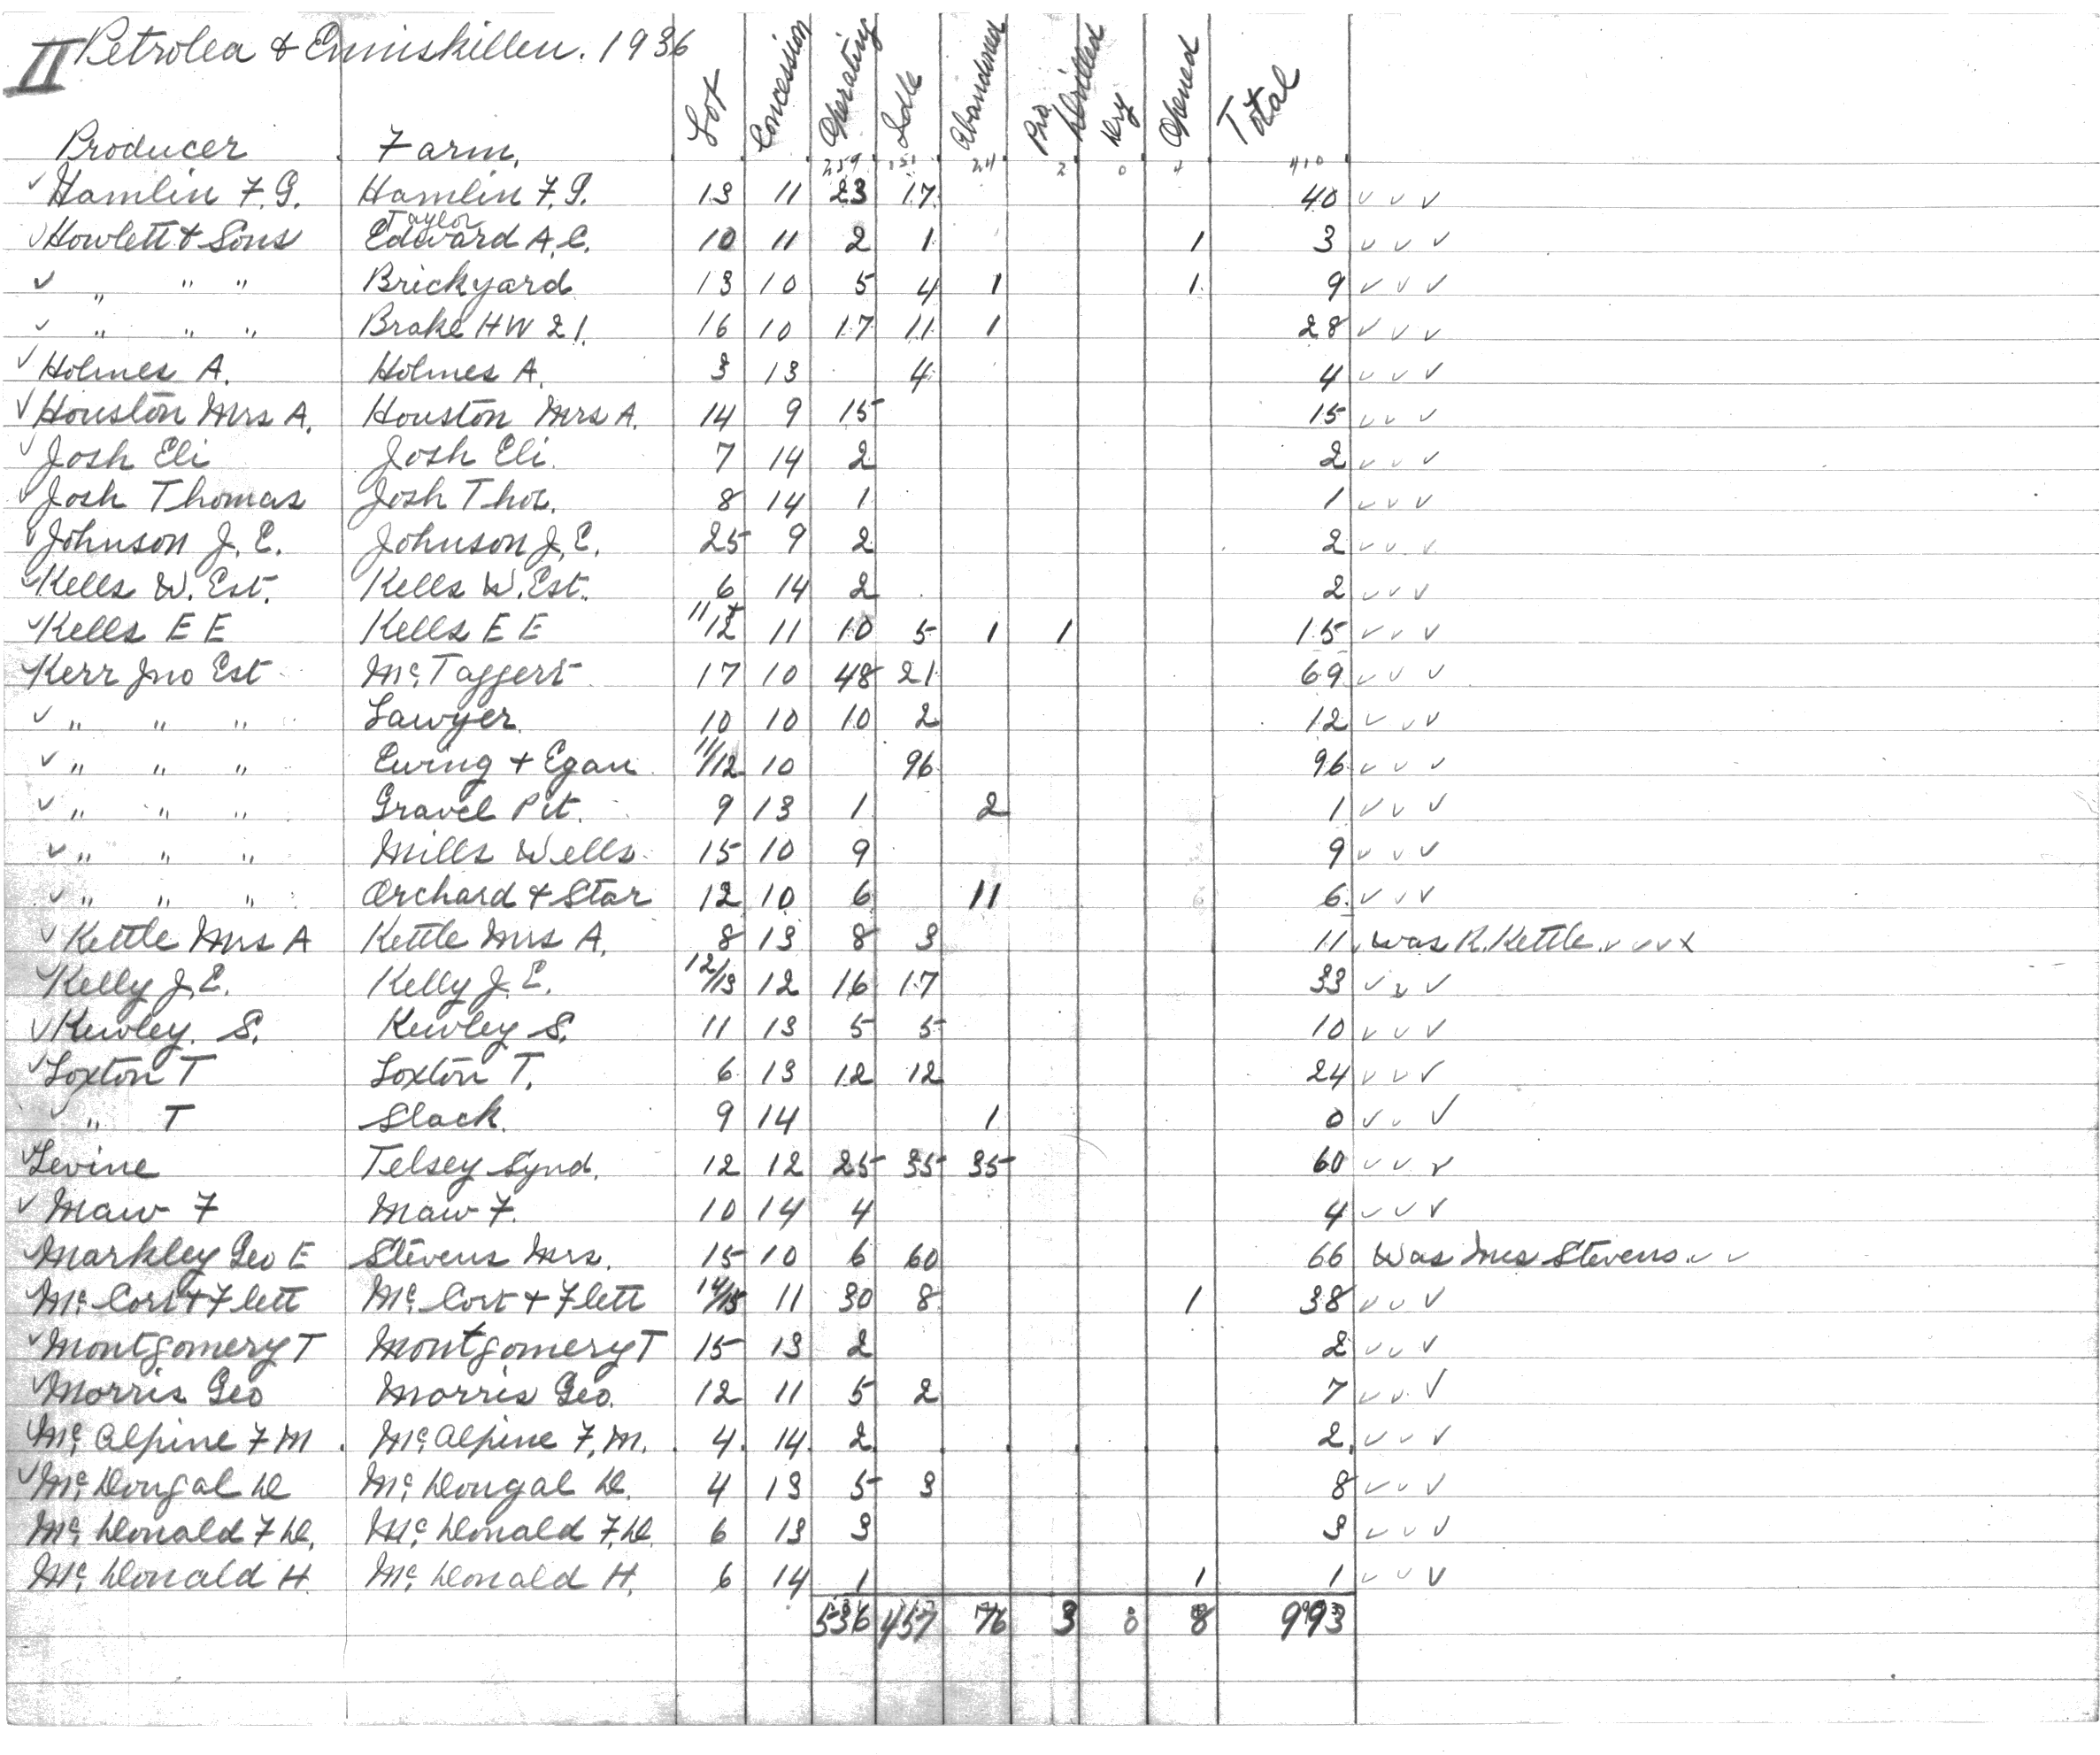 II Petrolea & Enniskillen. 1936
Producer Farm. Lot Concession Operating Idle Abandoned Pro Drilled Dry Opened Total
259 151 24 2 0 4 410
✓ Hamlin F. G. Hamlin F. G. 13 11 23 17 40 ✓ ✓ ✓
Taylor
✓ Howlett & Sons Edward A. C. 10 11 2 1 1 3 ✓ ✓ ✓
✓ " " " Brickyard 13 10 5 4 1 1 9 ✓ ✓ ✓
✓ " " " Brake HW 21. 16 10 17 11 1 28 ✓ ✓ ✓
✓ Holmes A. Holmes A. 3 13 4 4 ✓ ✓ ✓
✓ Houston Mrs A. Houston Mrs A. 14 9 15 15 ✓ ✓ ✓
✓ Josh Eli Josh Eli. 7 14 2 2 ✓ ✓ ✓
✓ Josh Thomas Josh Thos. 8 14 1 1 ✓ ✓ ✓
✓ Johnson J. E. Johnson J. E. 25 9 2 2 ✓ ✓ ✓
✓ Kells W. Est. Kells W. Est. 6 14 2 2 ✓ ✓ ✓
✓ Kells E E Kells E E 11/12 11 10 5 1 1 15 ✓ ✓ ✓
✓ Kerr Jno Est Mc Taggert 17 10 48 21 69 ✓ ✓ ✓
✓ " " " Sawyer 10 10 10 2 12 ✓ ✓ ✓
✓ " " " Ewing + Egan 11/12 10 96 96 ✓ ✓ ✓
✓ " " " Gravel Pit. 9 13 1 2 1 ✓ ✓ ✓
✓ " " " Mills Wells 15 10 9 9 ✓ ✓ ✓
✓ " " " Orchard & Star 12 10 6 11 6 ✓ ✓ ✓
✓ Kettle Mrs A Kettle Mrs A. 8 13 8 3 11 was R. Kettle ✓ ✓ ✓ x
✓ Kelly J. E. Kelly J. E. 12/13 12 16 17 33 ✓ ✓ ✓
✓ Kewley. S. Kewley S. 11 13 5 5 10 ✓ ✓ ✓
✓ Loxton T Loxton T. 6 13 12 12 24 ✓ ✓ ✓
✓ " T Slack. 9 14 1 0 ✓ ✓ ✓
✓ Levine Telsey Synd. 12 12 25 35 35 60 ✓ ✓ ✓
✓ Maw F Maw F. 10 14 4 4 ✓ ✓ ✓
✓ Markley Geo E Stevens Mrs. 15 10 6 60 66 Was Mrs Stevens ✓ ✓
✓ Mc Cort & Flett Mc Cort & Flett 14/15 11 30 8 1 38 ✓ ✓ ✓
✓ Montgomery T Montgomery T 15 13 2 2 ✓ ✓ ✓
✓ Morris Geo Morris Geo. 12 11 5 2 7 ✓ ✓ ✓
✓ Mc Alpine F M Mc Alpine F. M. 4 14 2 2 ✓ ✓ ✓
✓ Mc Dougal D Mc Dougal D. 4 13 5 3 8 ✓ ✓ ✓
Mc Donald F D. Mc Donald F. D. 6 13 3 3 ✓ ✓ ✓
Mc Donald H. Mc Donald H. 6 14 1 1 1 ✓ ✓ ✓
536 457 76 3 0 8 993